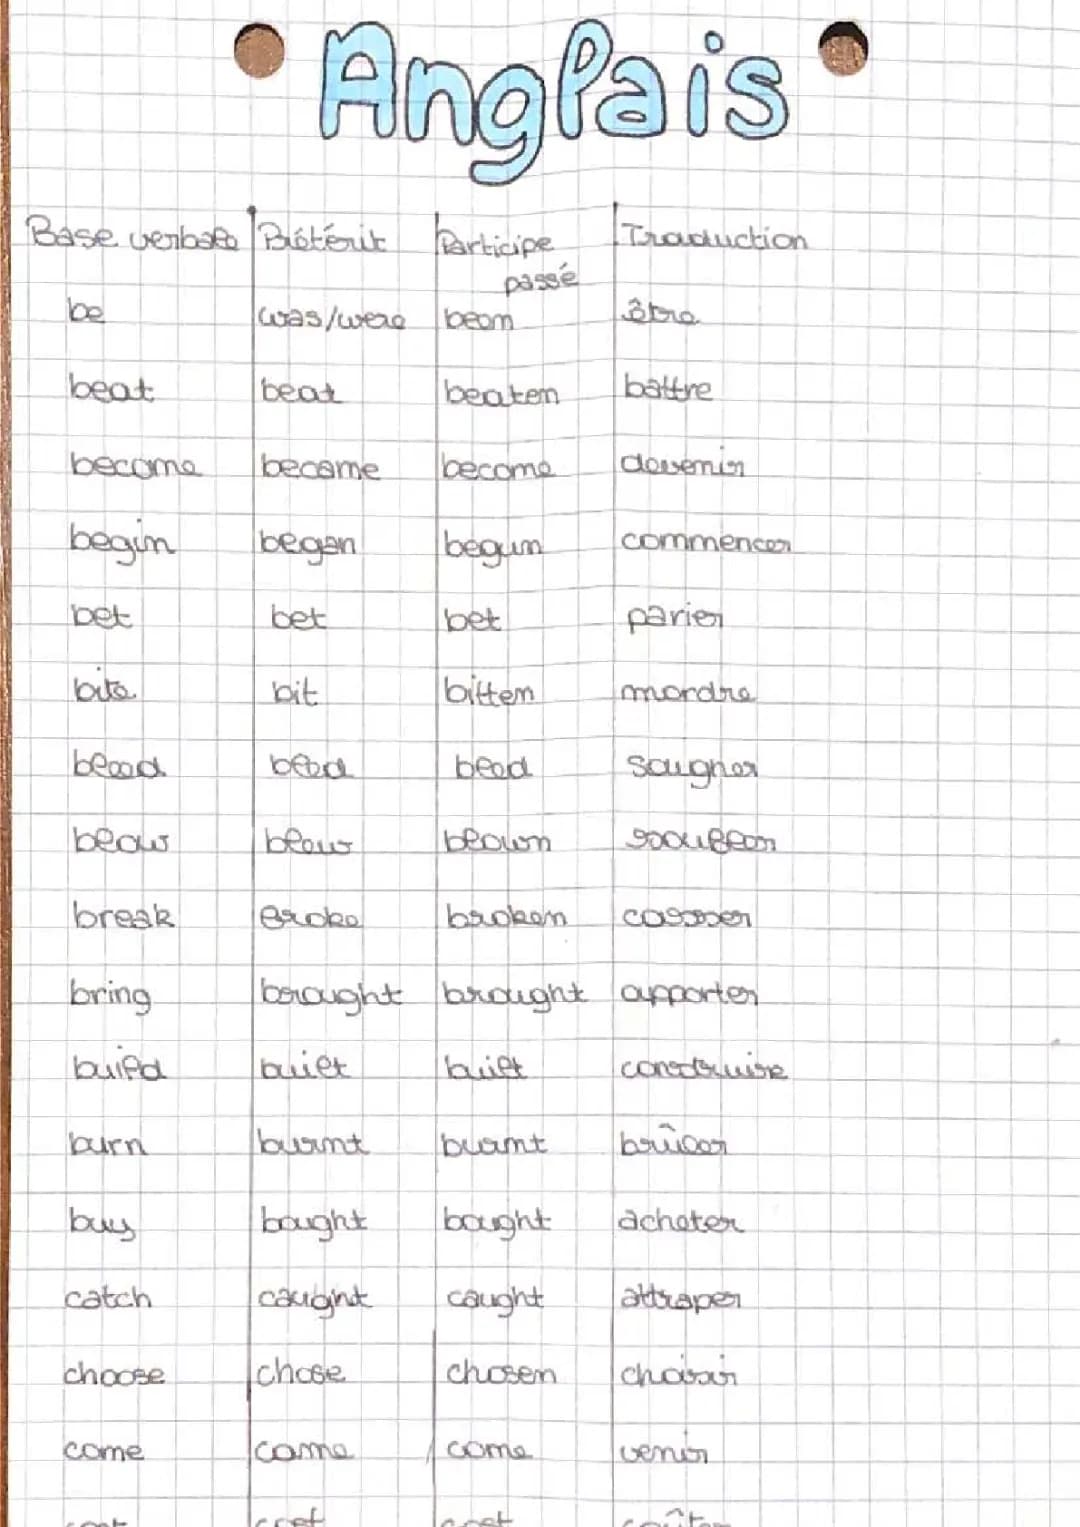 Anglais
Base verbale Prétérit Participe passé Traduction
be was/were been être
beat beat beaten battre
become became become devenir
begin began begun commencer
bet bet bet parier
bite bit bitten mordre
bleed bled bled saigner
blow blew blown
break broke broken casser
bring brought brought apporter
build built built construire
burn burnt burnt brûler
buy bought bought acheter
catch caught caught attraper
choose chose chosen choisir
come came come venir